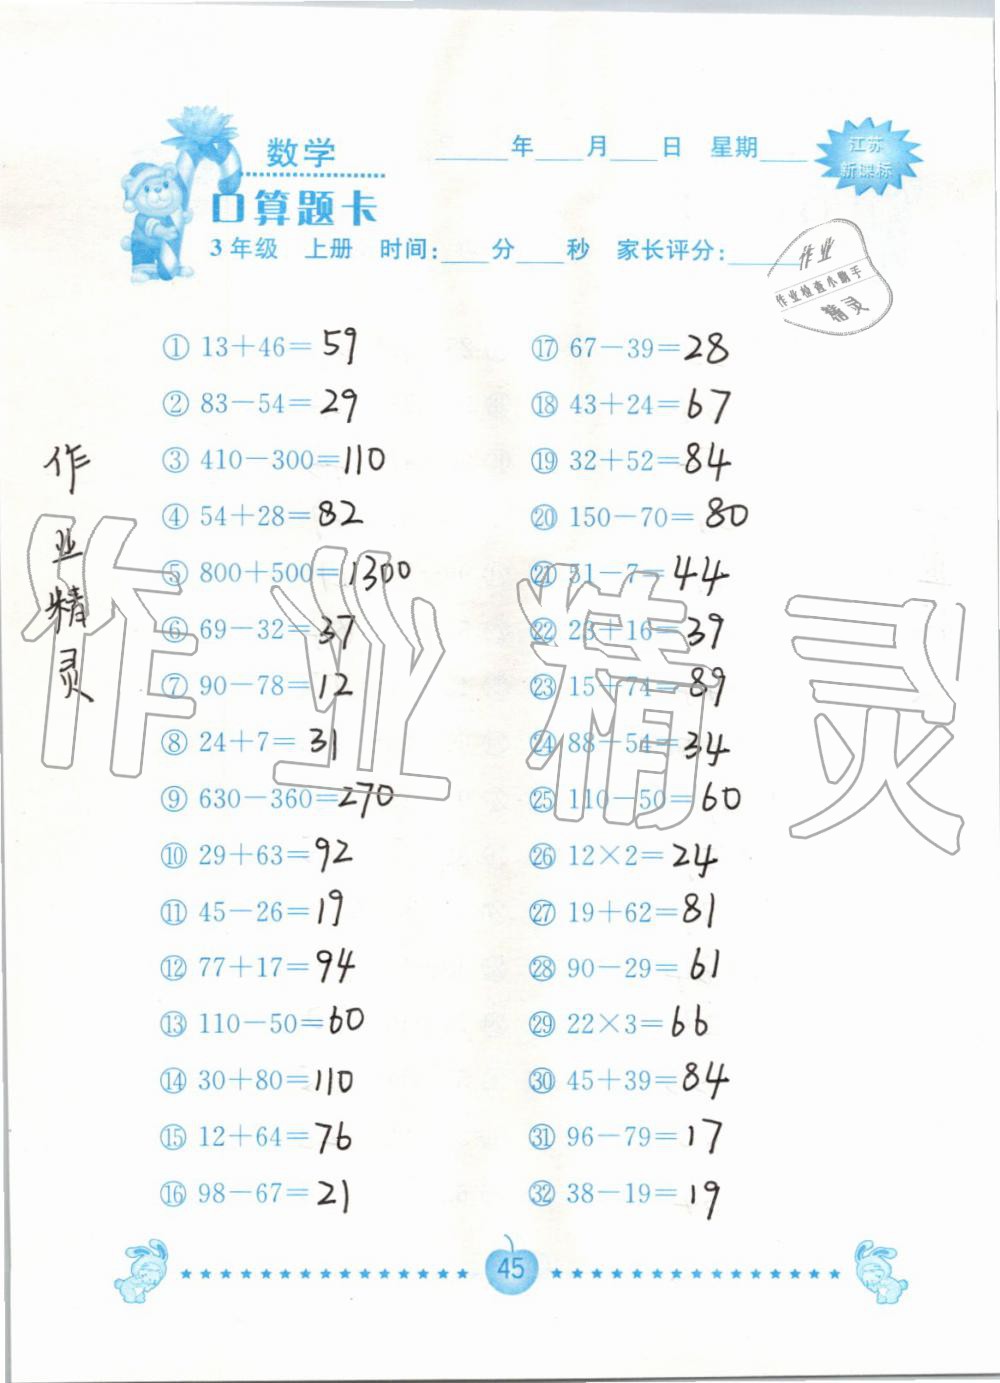 数学
____年____月____日 星期____
江苏
新课标
口算题卡
3年级 上册 时间:____分____秒 家长评分:____
作业
作业检查小助手
精灵
① 13+46=59
② 83-54=29
③ 410-300=110
④ 54+28=82
⑤ 800+500=1300
⑥ 69-32=37
⑦ 90-78=12
⑧ 24+7=31
⑨ 630-360=270
⑩ 29+63=92
⑪ 45-26=19
⑫ 77+17=94
⑬ 110-50=60
⑭ 30+80=110
⑮ 12+64=76
⑯ 98-67=21
⑰ 67-39=28
⑱ 43+24=67
⑲ 32+52=84
⑳ 150-70=80
㉑ 51-7=44
㉒ 23+16=39
㉓ 15+74=89
㉔ 88-54=34
㉕ 110-50=60
㉖ 12×2=24
㉗ 19+62=81
㉘ 90-29=61
㉙ 22×3=66
㉚ 45+39=84
㉛ 96-79=17
㉜ 38-19=19
作业精灵
作业精灵
45